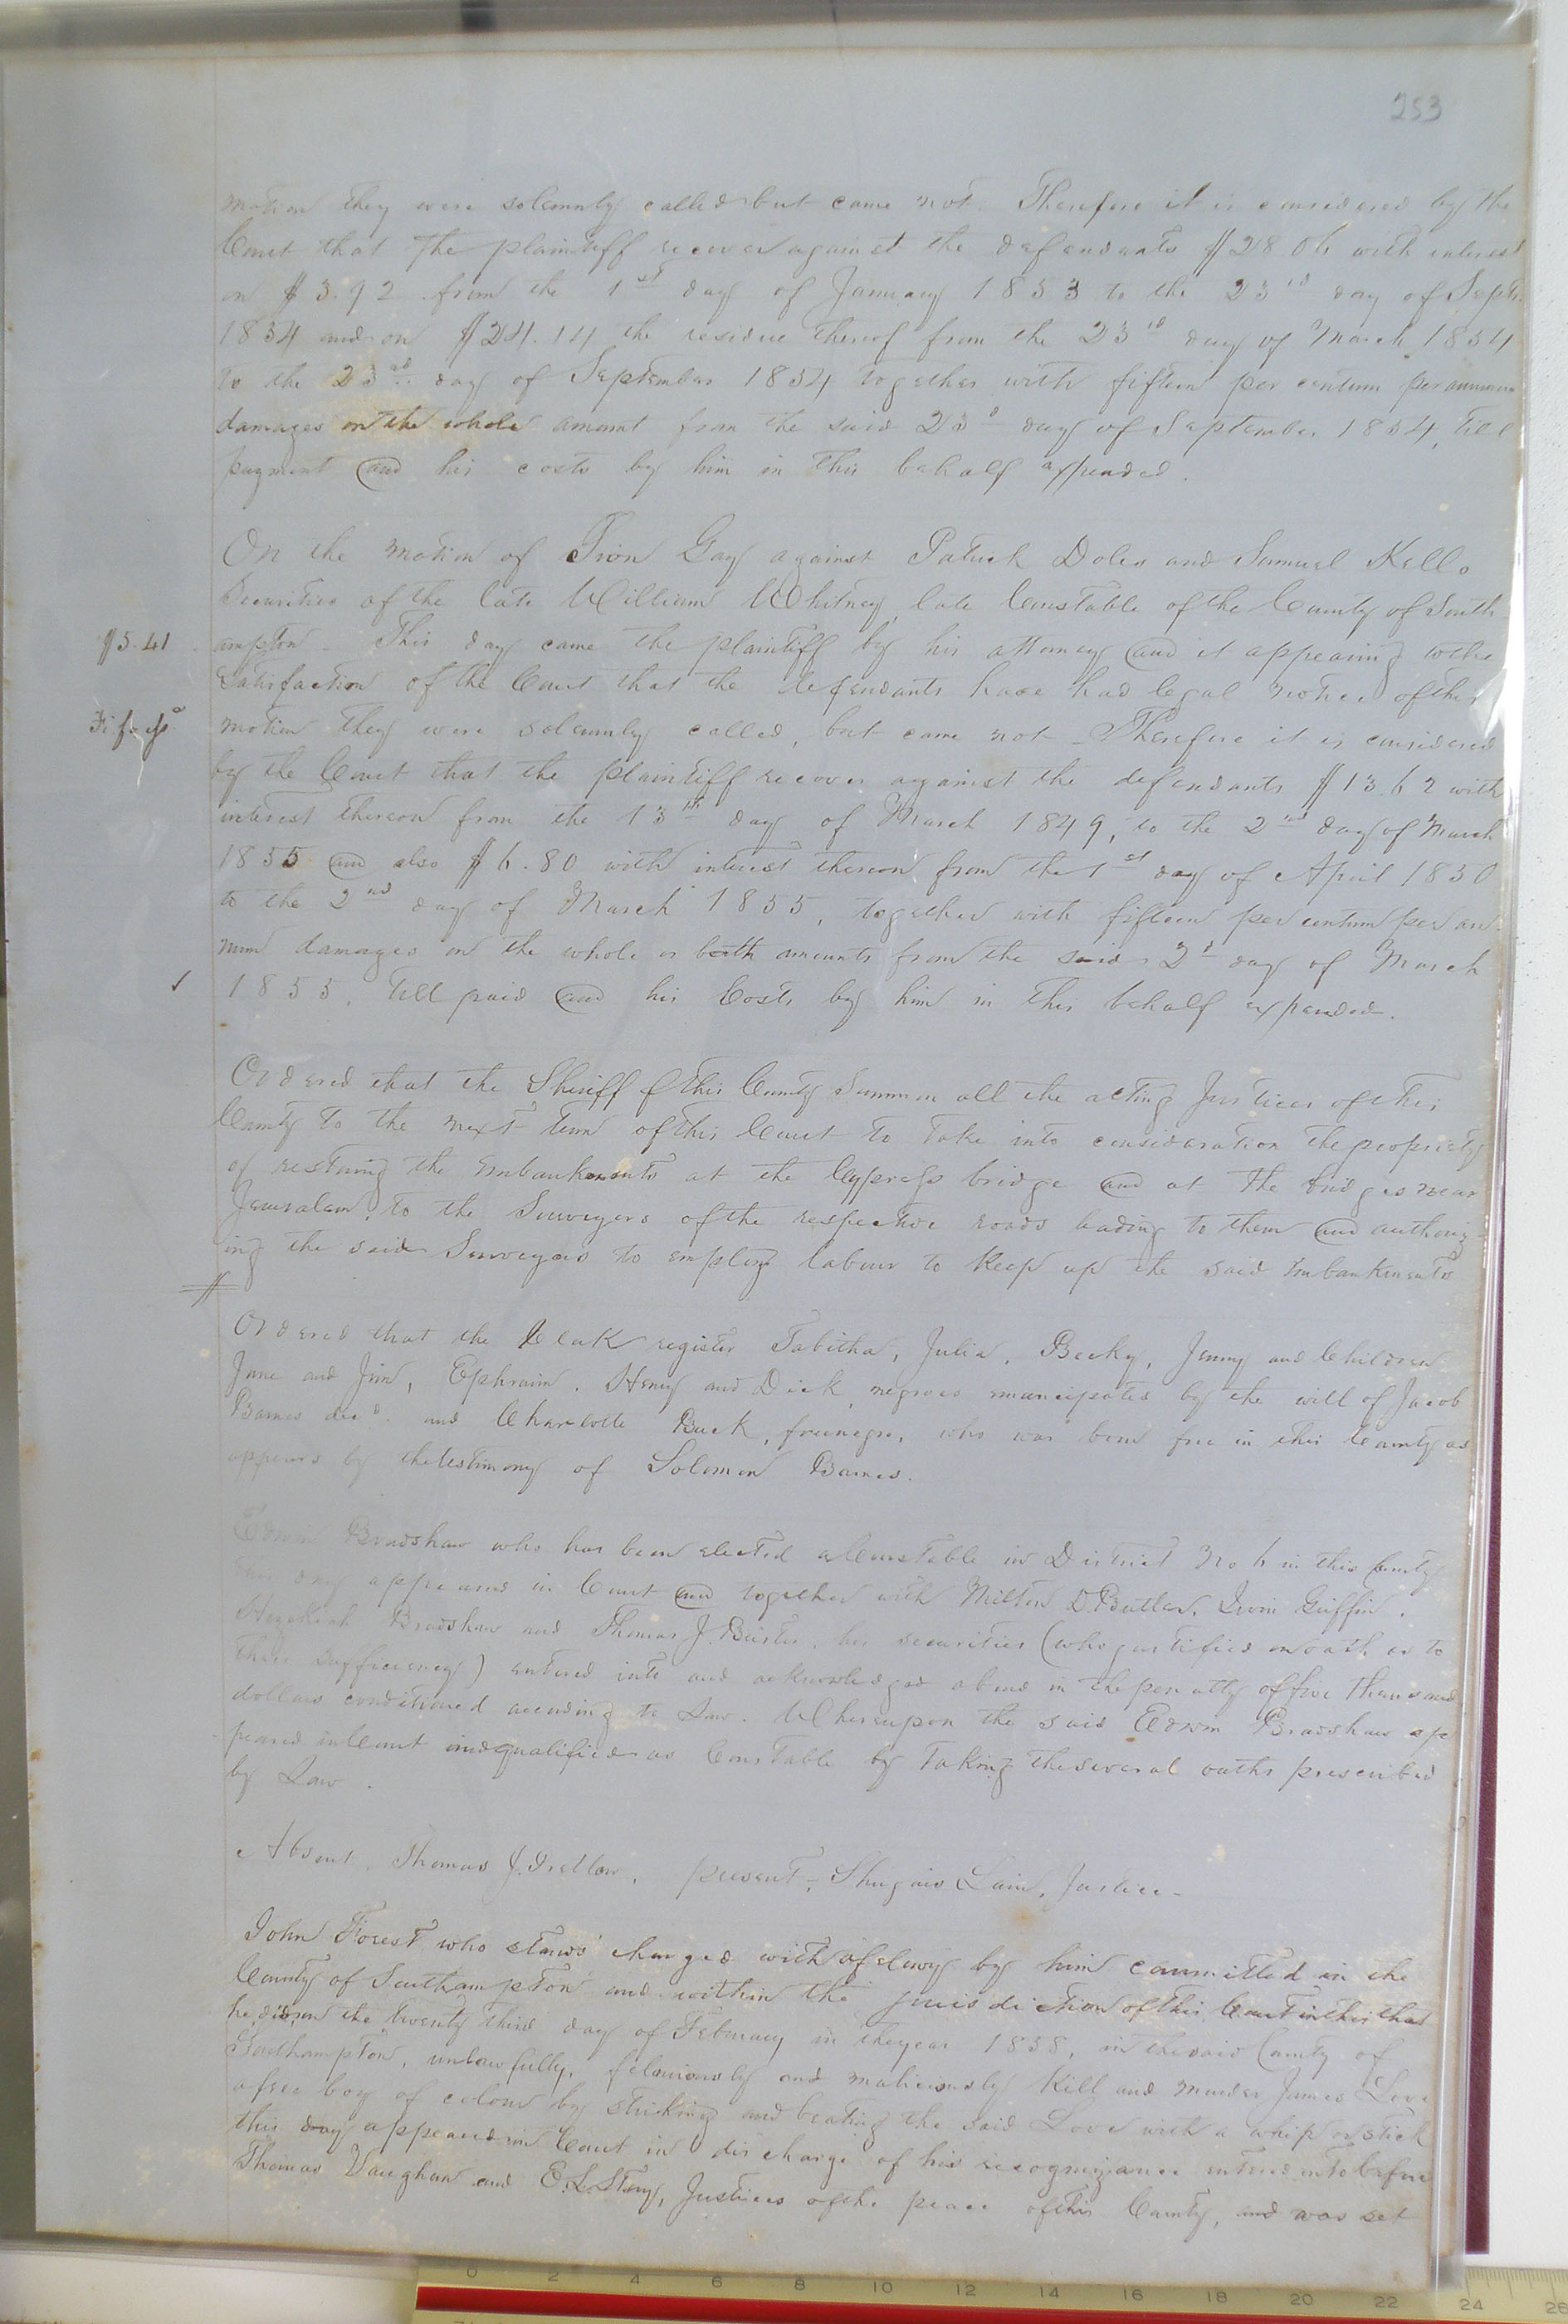 253
motion they were solemnly called but came not. Therefore it is considered by the
Court that the plaintiff recover against the defendants $28.06 with interest
on $3.92 from the 1st day of January 1853 to the 23rd day of Septr.
1854 and on $24.14 the residue thereof from the 23rd day of March 1854
to the 23rd day of September 1854 together with fifteen per centum per annum
damages on the whole amount from the said 23d day of September 1854, till
payment and his costs by him in this behalf expended.
On the motion of Gay against Patrick Doles and Samuel Kello
Securities of the late William Whitney, late Constable of the County of South
$5.41
ampton. This day came the plaintiff by his attorney and it appearing to the
satisfaction of the Court that the defendants have had legal notice of this
Fi. fa.
motion they were solemnly called, but came not. Therefore it is considered
by the Court that the plaintiff recover against the defendants $13.62 with
interest thereon from the 13th day of March 1849, to the 2nd day of March
1855 and also $6.80 with interest thereon from the 1st day of April 1850
to the 2nd day of March 1855, together with fifteen per centum per an-
num damages on the whole or both amounts from the said 2d day of March
1855, till paid and his Costs by him in this behalf expended.
Ordered that the Sheriff of this County Summon all the acting Justices of this
County to the next term of this Court to take into consideration the propriety
of the Embankments at the Cypress bridge and at the bridges near
Jerusalem, to the Surveyors of the respective roads leading to them and authoriz-
ing the said Surveyors to employ labour to keep up the said Embankments
Ordered that the Clerk register Tabitha, Julia, Becky, Jenny and Children
Jane and Jim, Ephraim, Henry and Dick, negroes emancipated by the will of Jacob
Barnes decd. and Charlotte Buck, free negro, who was born free in this County as
appears by the testimony of Solomon Barnes.
Edwin Bradshaw who has been elected a Constable in District No 6 in this County
this day appeared in Court and together with Milton D. Butler, Irvin Griffin,
Hezekiah Bradshaw and Thomas J. his securities (who justified on oath as to
their sufficiency) entered into and acknowledged a bond in the penalty of five thousand
dollars conditioned according to Law. Whereupon the said Edwin Bradshaw ap
peared in Court and qualified as Constable by taking the several oaths prescribed
by Law.
Absent, Thomas J. Pretlow, present, Lain, Justice.
John Forest who stands charged with a felony by him committed in the
County of Southampton and within the jurisdiction of this Court in this that
he did on the twenty third day of February in the year 1855, in the said County of
Southampton, unlawfully, feloniously and maliciously kill and murder James Love
a free boy of colour by striking and beating the said Love with a whip or stick
this day appeared in Court in discharge of his recognizance entered into before
Thomas Vaughan and E. L. Story, Justices of the peace of this County, and was set